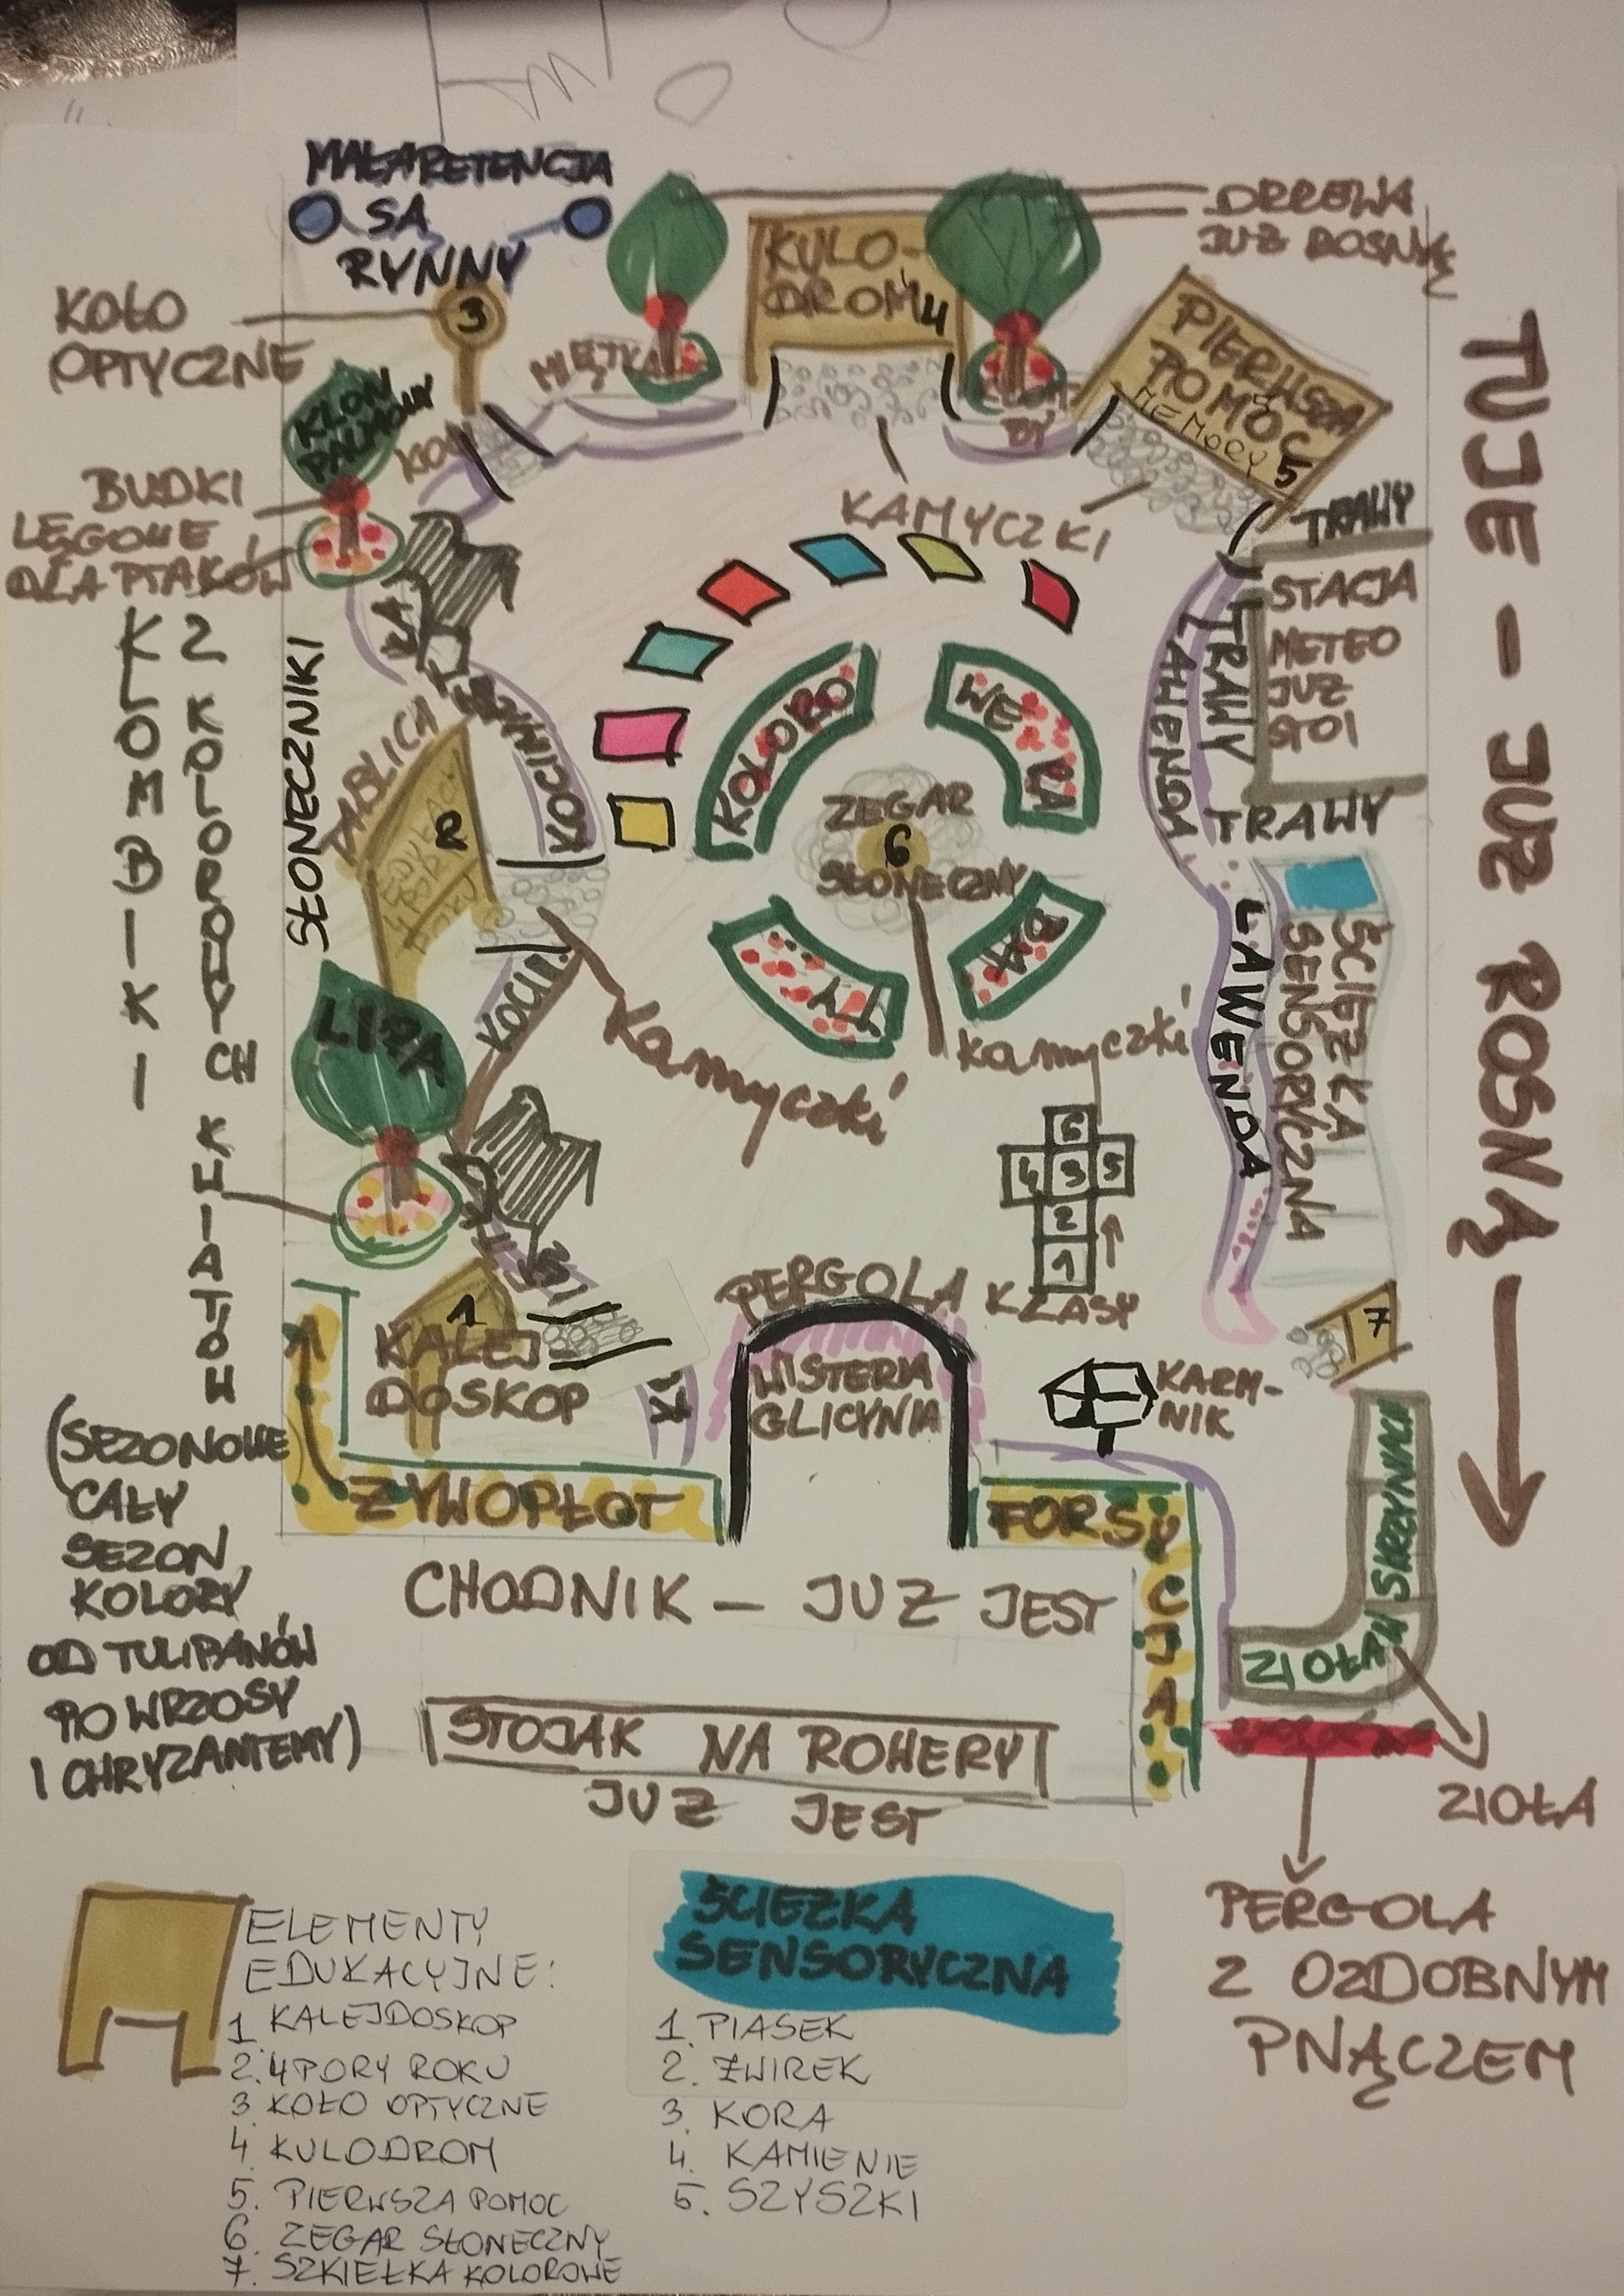 MAŁA RETENCJA
SĄ
RYNNY
DRZEWA
JUŻ ROSNĄ
KOŁO
OPTYCZNE
3
KULO-
DROM 4
PIERWSZA
POMOC
MEMORY 5
MIĘTKA
KLOM
BY
KLON
PALMOWY
KOCI
BUDKI
LĘGOWE
DLA PTAKÓW
KAMYCZKI
TRAWY
STACJA
METEO
JUŻ
STOI
TRAWY
LAWENDA
TRAWY
TUJE - JUŻ ROSNĄ
KLOMBIKI
Z KOLOROWYCH KWIATÓW
SŁONECZNIKI
TABLICA
2
KOCIMIĘTKA
KOLORO
WE
RA
BA
TY
ZEGAR
6
SŁONECZNY
KOCIM
LIPA
Kamyczki
kamyczki
LAWENDA
ŚCIEŻKA
SENSORYCZNA
6
4 3 5
2
1
KLASY
1
KALEJ
DOSKOP
PERGOLA
WISTERIA
GLICYNIA
7
KARM-
NIK
(SEZONOWE
CAŁY
SEZON
KOLORY
OD TULIPANÓW
PO WRZOSY
I CHRYZANTEMY)
ŻYWOPŁOT
FORSYCJA
ZIOŁA W SKRZYNIACH
CHODNIK - JUŻ JEST
STOJAK NA ROWERY
JUŻ JEST
ZIOŁA
PERGOLA
Z OZDOBNYM
PNĄCZEM
ELEMENTY
EDUKACYJNE:
1 KALEJDOSKOP
2. 4 PORY ROKU
3 KOŁO OPTYCZNE
4 KULODROM
5. PIERWSZA POMOC
6. ZEGAR SŁONECZNY
7. SZKIEŁKA KOLOROWE
ŚCIEŻKA
SENSORYCZNA
1. PIASEK
2. ŻWIREK
3. KORA
4. KAMIENIE
5. SZYSZKI